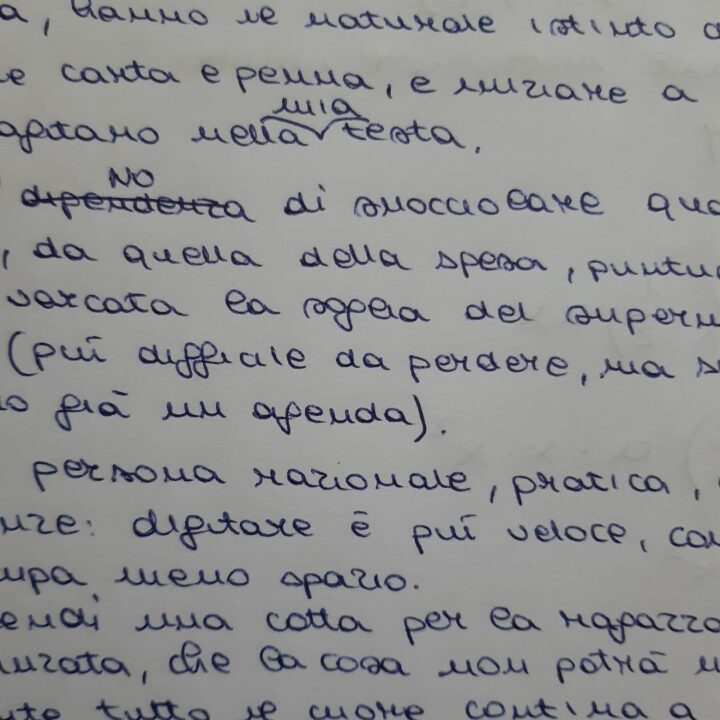 a, hanno il naturale istinto d
e carta e penna, e iniziare a
mia
agitano nella testa.
NO
dipendenza di snocciolare qua
, da quella della spesa, puntu
varcata la soglia del superm
(più difficile da perdere, ma s
o già un agenda).
persona razionale, pratica,
nze: digitare è più veloce, con
upa meno spazio.
endi una cotta per la ragazza
nzata, che la cosa non potrà n
nte tutto il cuore continua a